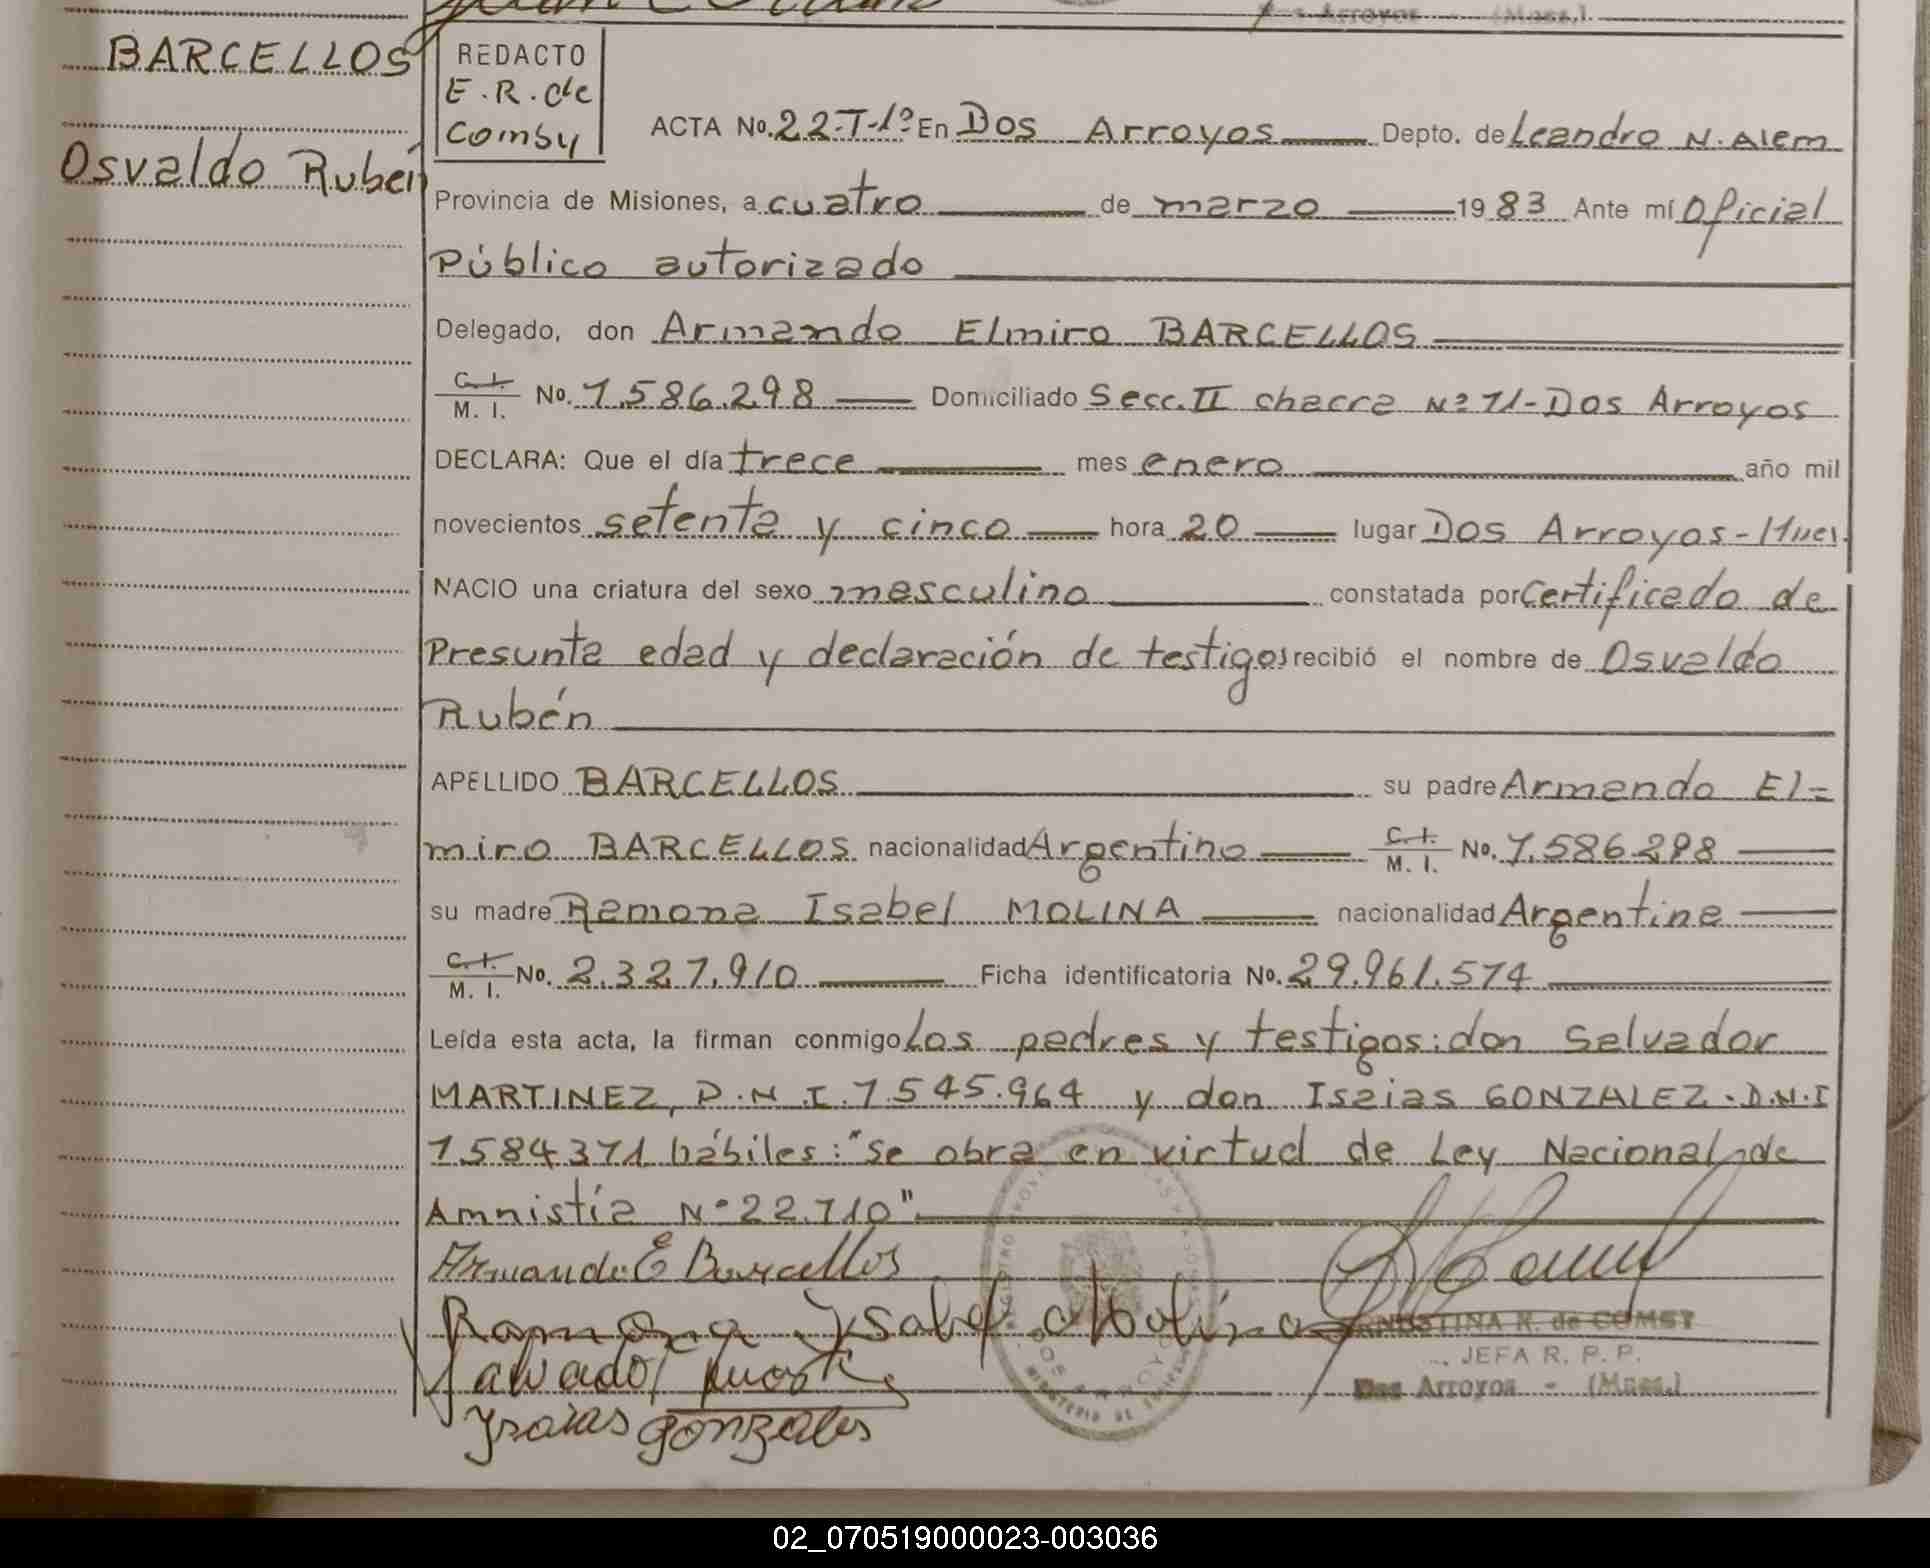 BARCELLOS
Osvaldo Rubén
REDACTO
E.R. de
Comby
ACTA No. 22-T-1º En Dos Arroyos Depto. de Leandro N. Alem
Provincia de Misiones, a cuatro de marzo 1983 Ante mí Oficial
Público autorizado
Delegado, don Armando Elmiro BARCELLOS
C. I. / M. I. No. 7.586.298 Domiciliado Secc. II chacra Nº 71-Dos Arroyos
DECLARA: Que el día trece mes enero año mil
novecientos setenta y cinco hora 20 lugar Dos Arroyos-
NACIO una criatura del sexo masculino constatada por Certificado de
Presunta edad y declaración de testigos recibió el nombre de Osvaldo
Rubén
APELLIDO BARCELLOS su padre Armando El=
miro BARCELLOS nacionalidad Argentino C. I. / M. I. No. 7.586.298
su madre Ramona Isabel MOLINA nacionalidad Argentina
C. I. / M. I. No. 2.327.910 Ficha identificatoria No. 29.961.574
Leída esta acta, la firman conmigo Los padres y testigos: don Salvador
MARTINEZ, D.N.I. 7.545.964 y don Isaias GONZALEZ. D.N.I
7.584.371 hábiles: "Se obra en virtud de Ley Nacional de
Amnistía Nº 22.710"
Armando E Barcellos
Ramona Ysabel Molina
Salvador
Ysaias gonzales
de COMBY
JEFA R. P. P.
Dos Arroyos - (Mnes.)
02_070519000023-003036